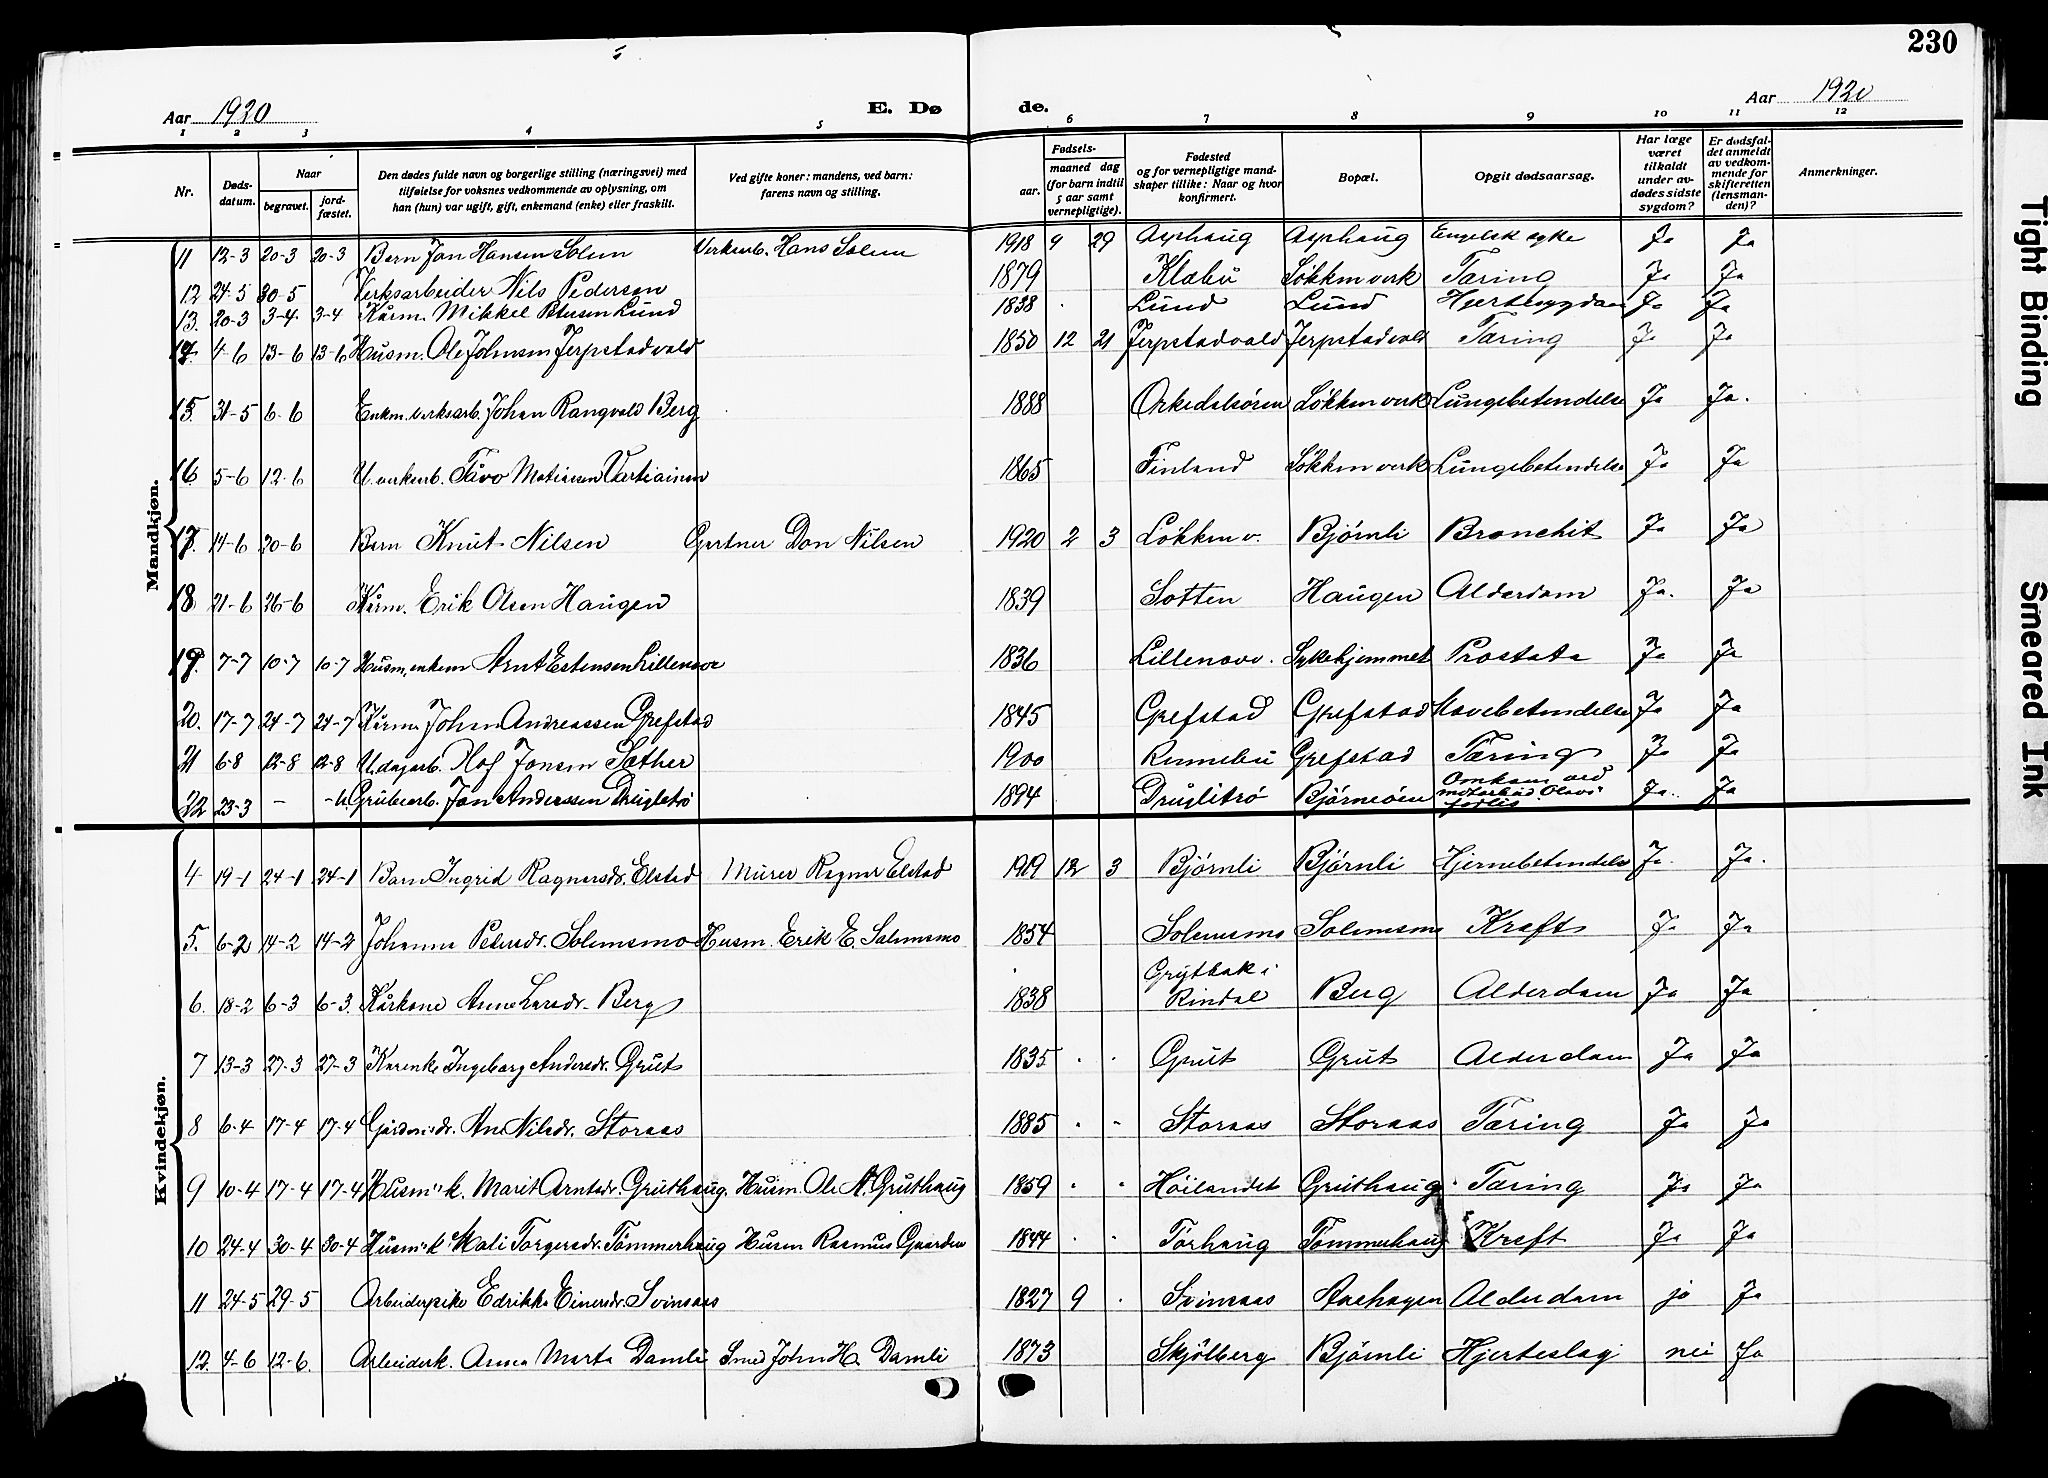 230
Aar 1920
E. Dø
de.
Aar 1920
1 2 3 4 5 6 7 8 9 10 11 12
Nr.
Døds-
datum.
Naar
begravet.
jord-
fæstet.
Den dødes fulde navn og borgerlige stilling (næringsvei) med
tilføielse for voksnes vedkommende av oplysning, om
han (hun) var ugift, gift, enkemand (enke) eller fraskilt.
Ved gifte koner: mandens, ved barn:
farens navn og stilling.
Fødsels-
aar.
maaned dag
(for barn indtil
5 aar samt
vernepligtige).
Fødested
og for vernepligtige mand-
skaper tillike: Naar og hvor
konfirmert.
Bopæl.
Opgit dødsaarsag.
Har læge
været
tilkaldt
under av-
dødes sidste
sygdom?
Er dødsfal-
det anmeldt
av vedkom-
mende for
skifteretten
(lensman-
den)?
Anmerkninger.
Mandkjøn.
11 12-3 20-3 20-3 Barn Jon Hansen Solem Verksarb. Hans Solem 1918 9 29 Asphaug Asphaug Engelsk syke Ja Ja
12 24-5 30-5 Verksarbeider Nils Pedersen 1879 Klæbu Løkken verk Tæring Ja Ja
13. 20-3 3-4 3-4 Kårm. Mikkel Petersen Lund 1838 Lund Lund Hjertesygdom Ja Ja
14. 4-6 13-6 13-6 Husm. Ole Johnsen Jerpstadvald 1850 12 21 Jerpstadvald Jerpstadvald Tæring Ja Ja
15. 31-5 6-6 Enkm. verksarb. Johan Rangvald Berg 1888 Orkedalsøren Løkken verk Lungebetendelse Ja Ja.
16. 5-6 12-6 U. verksarb. Tåvo Matiasen Vartiainen 1865 Finland Løkken verk Lungebetendelse Ja Ja
17. 14-6 20-6 Barn Knut Nilsen Gartner Don Nilsen 1920 2 3 Løkken v. Bjørnli Bronchit Ja Ja
18 21-6 26-6 Kårm. Erik Olsen Haugen 1839 Solten Haugen Alderdom Ja. Ja
19. 7-7 10-7 10-7 Husm, enkem Arnt Estensen Lillenove 1836 Lillenove. Sykehjemmet Prostata Ja Ja
20. 17-7 24-7 24-7 Kårm. John Andreassen Grefstad 1845 Grefstad Grefstad Mavebetendelse Ja Ja
21 6-8 12-8 12-8 U. dagarb. Olof Jonsen Sæther 1900 Rennebu Grefstad Tæring Ja Ja
22 23-3 - -U. Grubearb. Jon Anderssen Drugletrø 1894 Druglitrø Bjørnøen Omkom ved
motorbåd Olavs
forlis Ja. Ja
Kvindekjøn.
4 19-1 24-1 24-1 Barn Ingrid Ragnarsdr. Elstad Murer Ragnar Elstad 1919 12 3 Bjørnli Bjørnli Hjernebetendelse Ja. Ja.
5. 6-2 14-2 14-2 Johanna Petersdr. Solemsmo Husm. Erik E. Solemsmo 1854 Solemsmo Solemsmo Kræft Ja Ja
6. 18-2 6-3 6-3. Kårkone Anne Larsdr. Berg 1838 Grytbak i
Rindal Berg Alderdom Ja Ja
7 13-3 27-3 27-3 Karenke Ingeborg Andersdr. Grut 1835 Grut Grut Alderdom Ja Ja
8 6-4 17-4 17-4 Gårdm. dr. Ane Nilsdr. Storaas 1885 Storaas Storaas Tæring Ja Ja
9 10-4 17-4 17-4 Husm. k. Marit Arntsdr. Gruthaug. Husm. Ole A. Gruthaug 1859 Høilandet Gruthaug Tæring Ja Ja
10 24-4 30-4 30-4 Husm. k. Mali Torgersdr. Tømmerhaug Husm Rasmus Gaarden 1844 Tørhaug Tømmerhaug Kræft Ja Ja
11 24-5 29-5 Arbeiderpike Edrikke Einersdr. Svinsaas 1827 9 Svinsaas Aashagen Alderdom ja Ja
12. 4-6 12-6. Arbeiderk. Anna Marta Damli Smed John H. Damli 1873 Skjølberg Bjørnli Hjerteslag nei Ja
Tight Binding
Smeared Ink